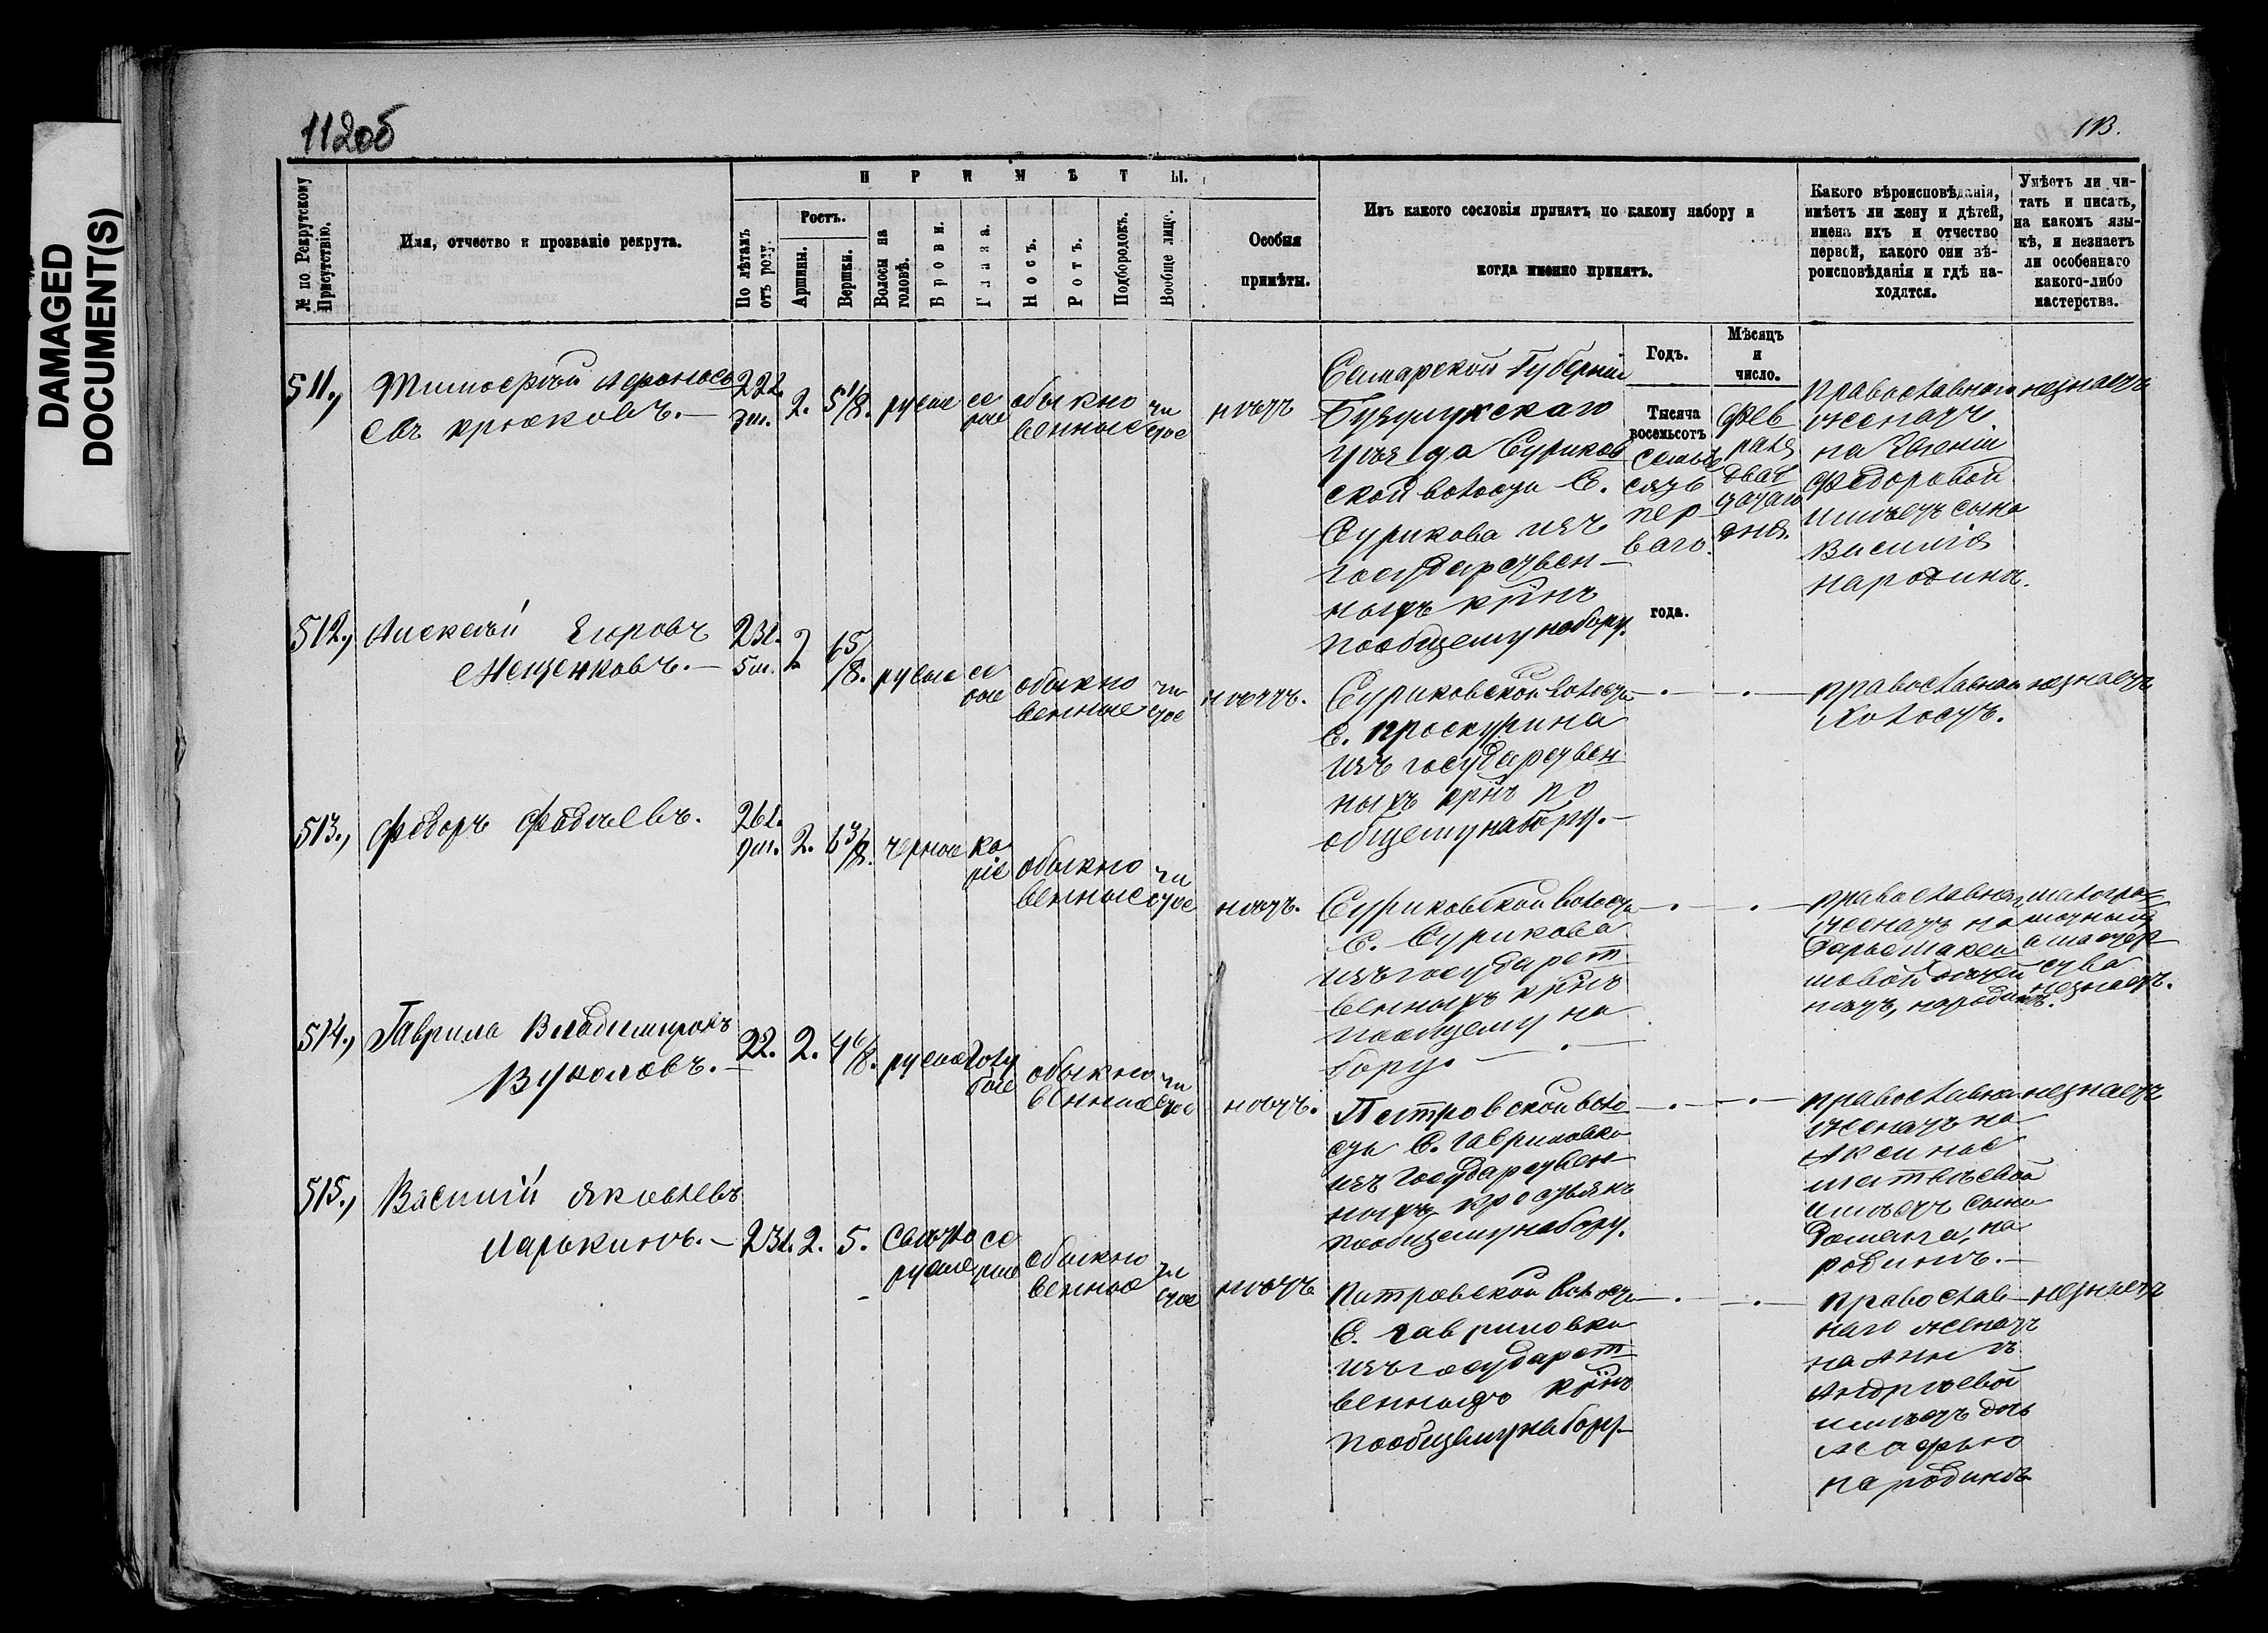 DAMAGED
DOCUMENT(S)
112об
113.
№ по Рекрутскому
Присутствію.
Имя, отчество и прозваніе рекрута.
ПРИМѢТЫ.
По лѣтамъ
отъ роду.
Ростъ.
Аршины.
Вершки.
Волосы на
головѣ.
Брови.
Глаза.
Носъ.
Ротъ.
Подбородокъ.
Вообще лице.
Особыя
примѣты.
Изъ какого сословія принятъ по какому набору и
когда именно принятъ.
Какого вѣроисповѣданія,
имѣетъ ли жену и дѣтей,
имена ихъ и отчество
первой, какого они вѣ-
роисповѣданія и гдѣ на-
ходятся.
Умѣетъ ли чи-
тать и писать,
на какомъ язы-
кѣ, и незнаетъ
ли особеннаго
какого-либо
мастерства.
Годъ.
Мѣсяцъ
и
число.
511., Тимофѣй Афонась
евъ Крюковъ.—
22 л.
3 м.
2.
5 1/8.
русые
се
рые
обыкно
венные
чи
стое
нѣтъ
Самарской Губерніи
Бузулукскаго
уѣзда Суриков
ской волости С.
Сурикова изъ
государствен-
ныхъ крнъ
по общему набору.
Тысяча
восемьсотъ
семьде
сятъ
пер-
ваго.
года.
Фев
раля
двад
цатаго
дня.
православнаго
женатъ
на Евгеніи
Федоровой
имѣетъ сына
Василія
народинѣ.
незнаетъ
512., Алексѣй Егоровъ
Мещенковъ.—
23 л.
5 м.
2
6 5/8.
русые
се
рые
обыкно
венные
чи
стое
нѣтъ.
Суриковской волости
С. Проскурина
изъ государствен
ныхъ крнъ по
общему набору.—
православнаго
холостъ.
незнаетъ
513., Федоръ Фадѣевъ.
26 л.
9 м.
2.
6 3/8.
черные
ка
ріе
обыкно
венные
чи
стое
нѣтъ.
Суриковской волости
С. Сурикова
изъ государст
венныхъ крнъ
по общему на
бору.—
православнаго
женатъ на
Дарье Макси
мовой дѣтей
нѣтъ, народинѣ.
малогра-
мотный
а мастер
ства
незнаетъ.
514., Гаврила Владимировъ
Вуколовъ.—
22.
2.
4 6/8.
русые
голу
бые
обыкно
венные
чи
стое
нѣтъ.
Петровской воло
сти С. Гавриловки
изъ государствен-
ныхъ крестьянъ
по общему набору.
православнаго
женатъ на
Аксинье
Матвѣевой
имѣетъ сына
Романа, на
родинѣ.—
незнаетъ
515., Василій Яковлевъ
Ларькинъ.—
23 л.
2.
5.
свѣтло
русые
се
рые
обыкно
венные
чи
стое
нѣтъ
Петровской волости
С. Гавриловки
изъ государст
венныхъ крнъ
по общему набору—
православ-
наго женатъ
на Аннѣ
Андрѣевой
имѣетъ дочь
Марфью
народинѣ
незнаетъ